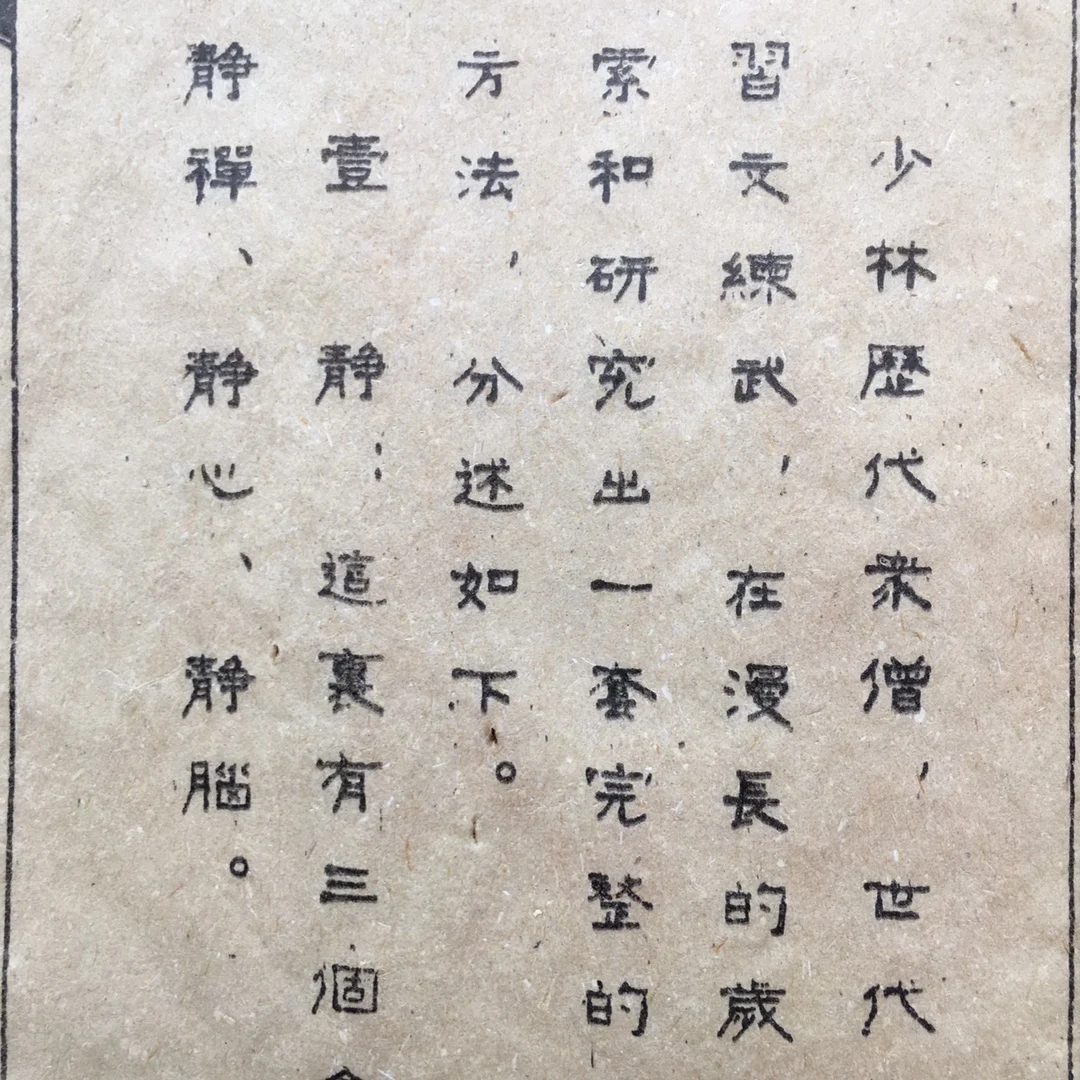 少林歷代衆僧，世代
習文練武，在漫長的歲
索和研究出一套完整的
方法，分述如下。
壹靜：這裏有三個
靜禪、靜心、靜腦。